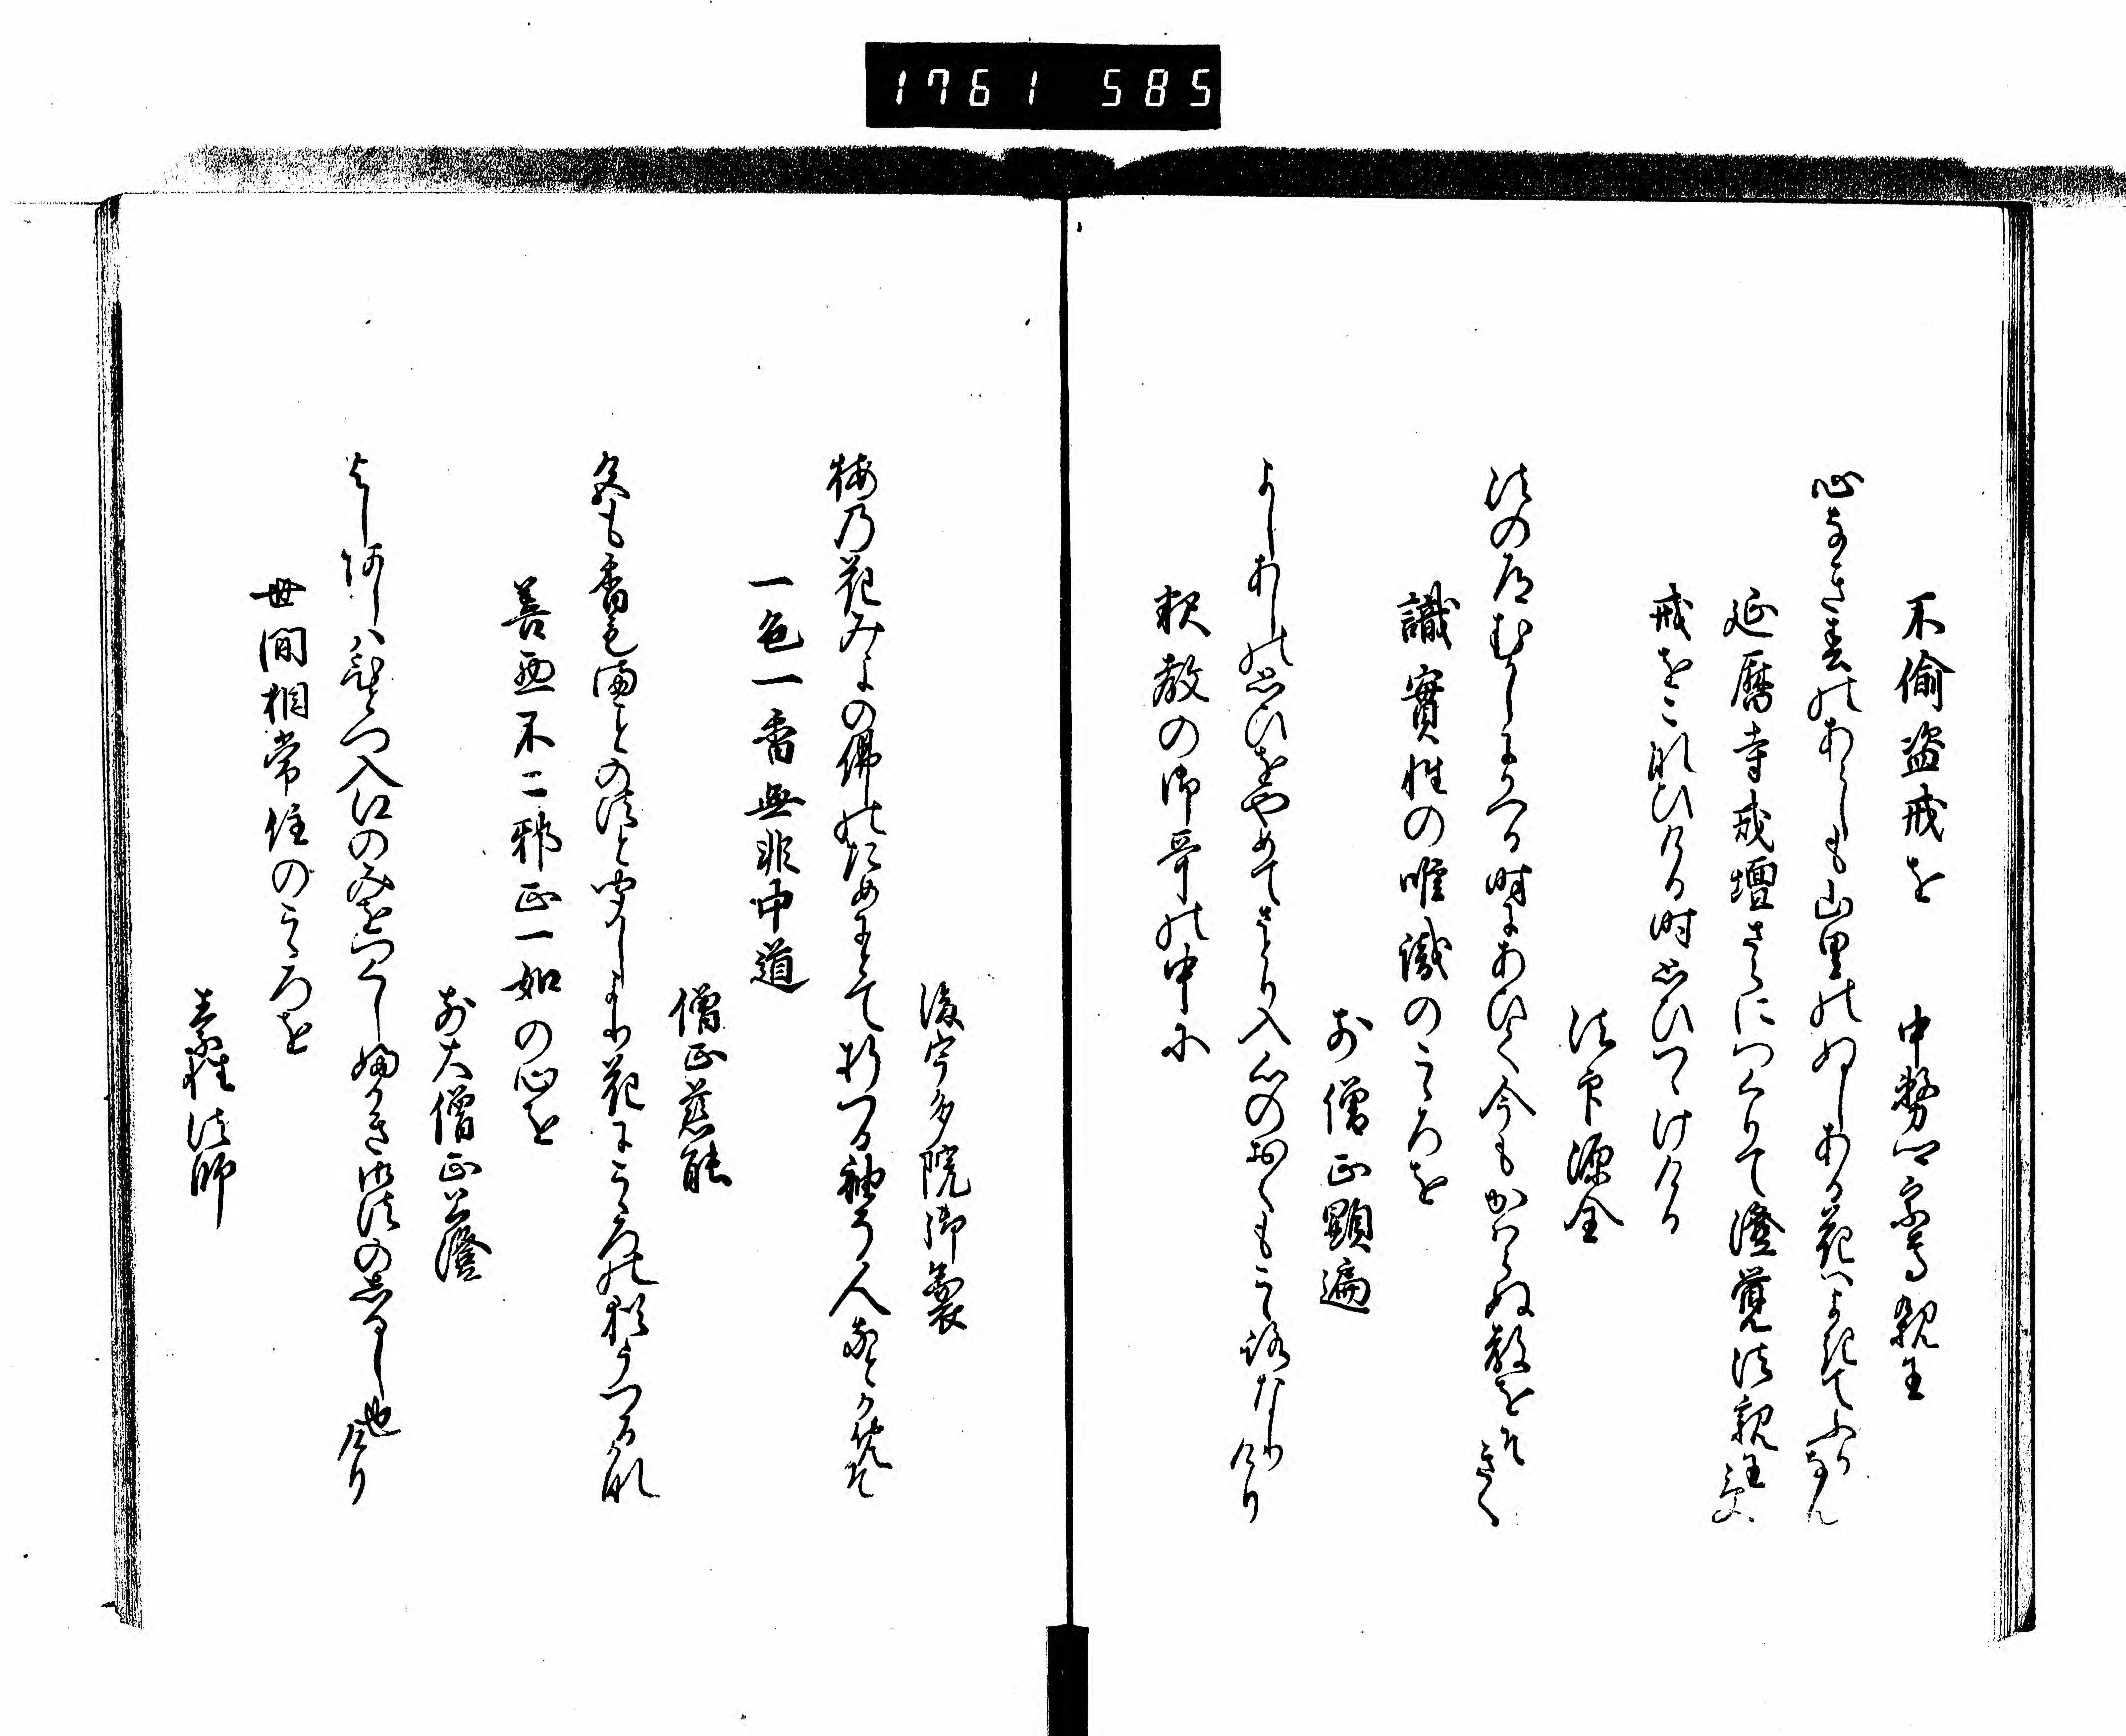 1761 585
不偸盗戒を　中務卿宗尊親王
心なき春のあらしも山里のぬしある花はよきてふかなん
延暦寺戒壇さらにつくりて澄覚法親王受
戒をこなひける時思ひつゝけける
法印源全
法の道むかしにかへる時にあひて今もかはらぬ教をそきく
識實性の唯識のこゝろを
前僧正顕遍
よしあしの思ひをやめてさとり入心のおくもこゝろなりけり
釈教の御哥の中に
後宇多院御製
梅乃花みよの佛のためにとて折つる袖を人なとかめそ
一色一香無非中道
僧正慈能
色も香も満ことの法と聞しより花にこゝろの猶うつる哉
善悪不二邪正一如の心を
前大僧正公澄
よし阿しハひとつ入江のみをつくしふかき御法のしるし也けり
世間相常住のこゝろを
素性法師